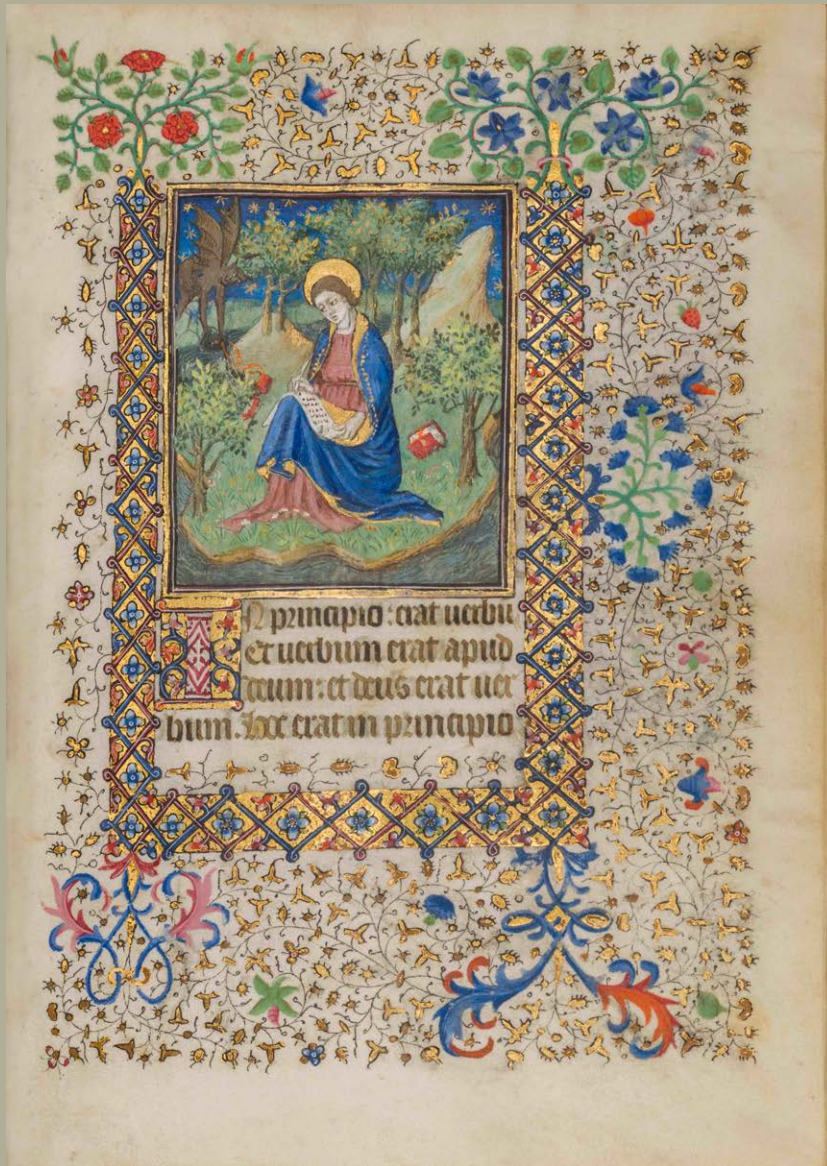 In principio: erat uerbu
Et uerbum erat apud
deum: et deus erat uer
bum. Hoc erat in principio